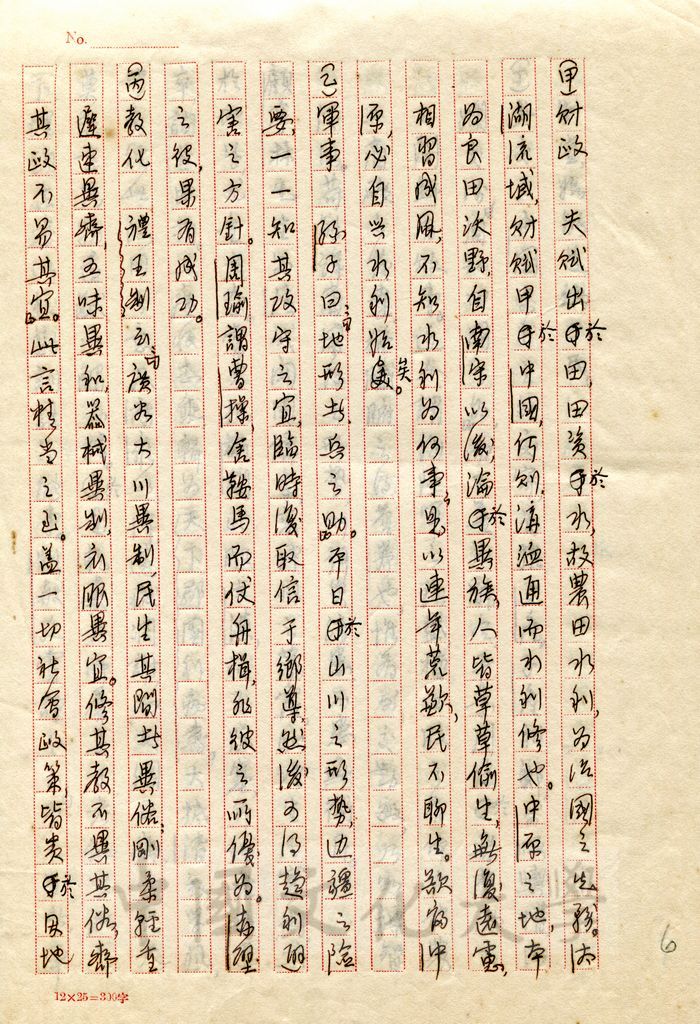 No.
㊙甲財政 夫賦出於田,田資於水,故農田水利,為治國之先務。太
湖流域,財賦甲於中國,何則,溝洫通而水利修也。中原之地,本
為良田沃野,自南宋以後,淪於異族,人皆草草偷生,無復遠慮,
相習成風,不知水利為何事,是以連年荒歉,民不聊生。欲富中
原,必自興水利始矣。
乙軍事 孫子曰「地形者,兵之助」。平日於山川之形勢,边疆之險
要,一一知其攻守之宜,臨時復取信于鄉導,然後可得趨利避
害之方針。周瑜謂曹操,舍鞍馬而仗舟楫,非彼之所優為。赤壁
之役,果有成功。
丙教化 禮王制云「廣谷大川異制,民生其間者異俗,剛柔輕重
遲速異齊,五味異和,器械異制,衣服異宜。修其教不異其俗,齊
其政不易其宜」。此言精當之至。蓋一切社會政策,皆貴於因地
12×25=300字
中國文化大學
6